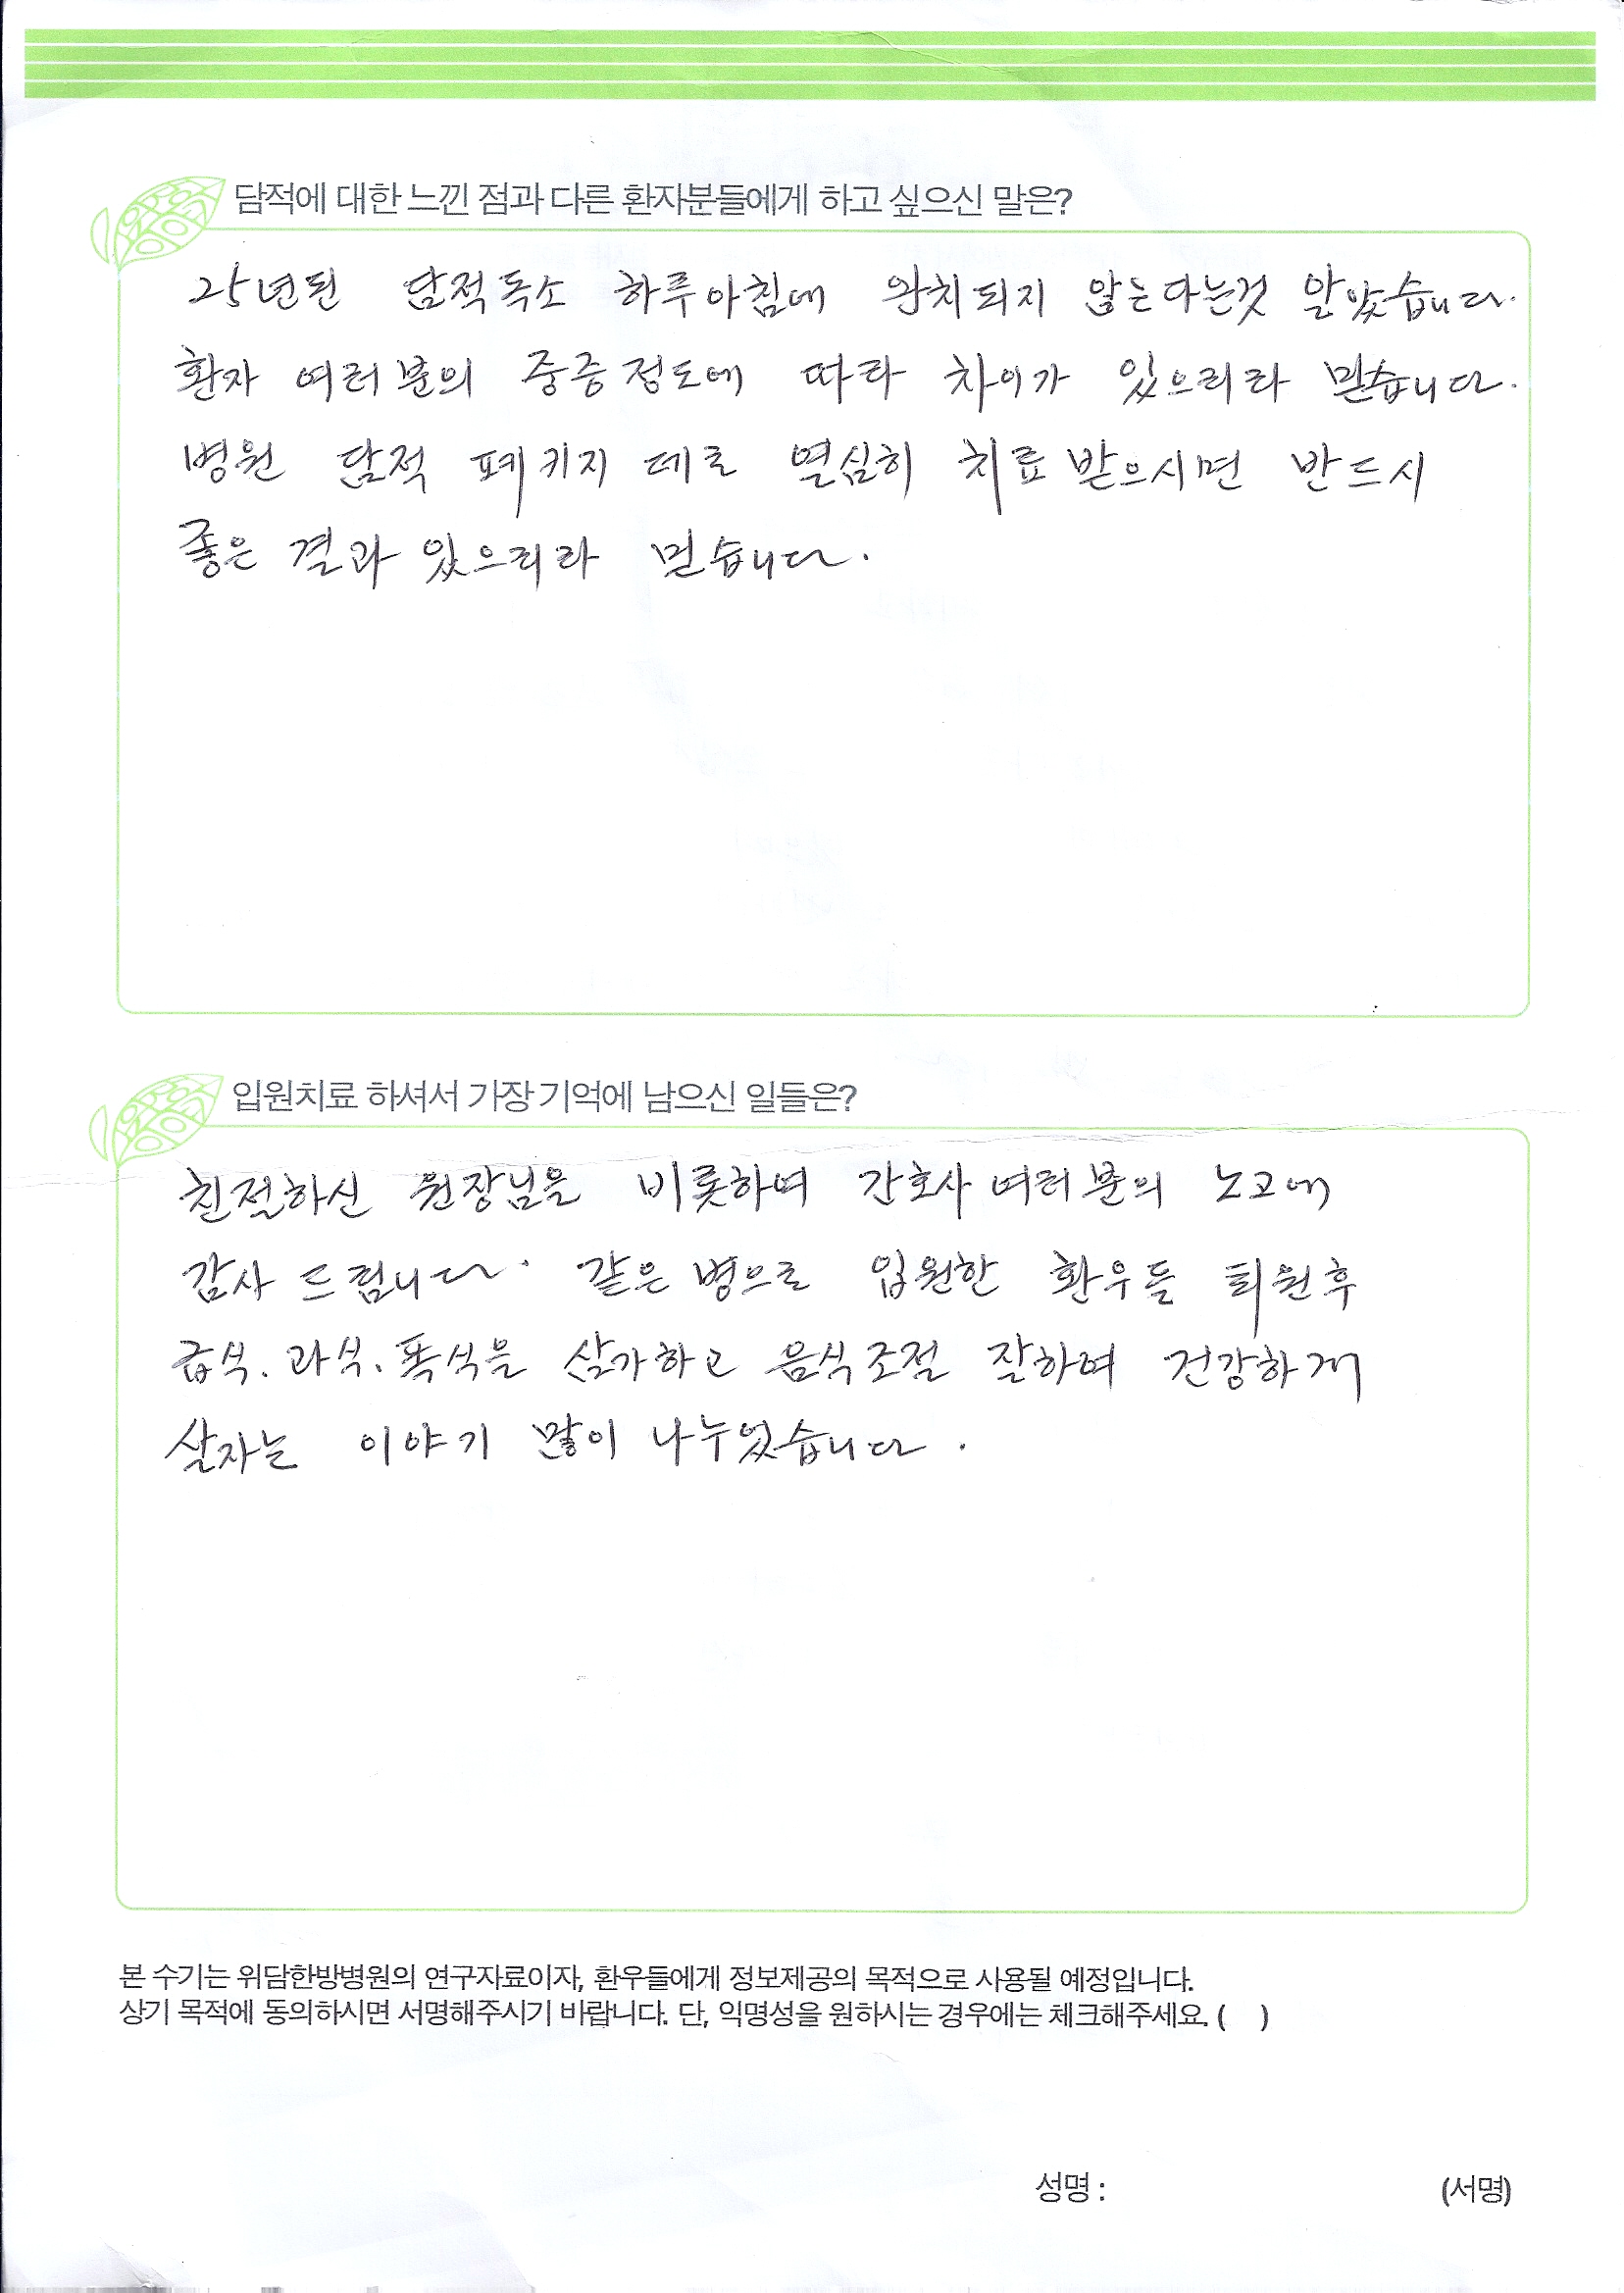 담적에 대한 느낀 점과 다른 환자분들에게 하고 싶으신 말은?
25년된 담적독소 하루아침에 완치되지 않는다는것 알았습니다.
환자 여러분의 중증정도에 따라 차이가 있으리라 믿습니다.
병원 담적 페키지 데로 열심히 치료 받으시면 반드시
좋은 결과 있으리라 믿습니다.
입원치료 하셔서 가장 기억에 남으신 일들은?
친절하신 원장님을 비롯하여 간호사 여러분의 노고에
감사 드립니다. 같은 병으로 입원한 환우들 퇴원후
급식.과식.폭식을 삼가하고 음식조절 잘하여 건강하게
살자는 이야기 많이 나누었습니다.
본 수기는 위담한방병원의 연구자료이자, 환우들에게 정보제공의 목적으로 사용될 예정입니다.
상기 목적에 동의하시면 서명해주시기 바랍니다. 단, 익명성을 원하시는 경우에는 체크해주세요. ( )
성명 : (서명)